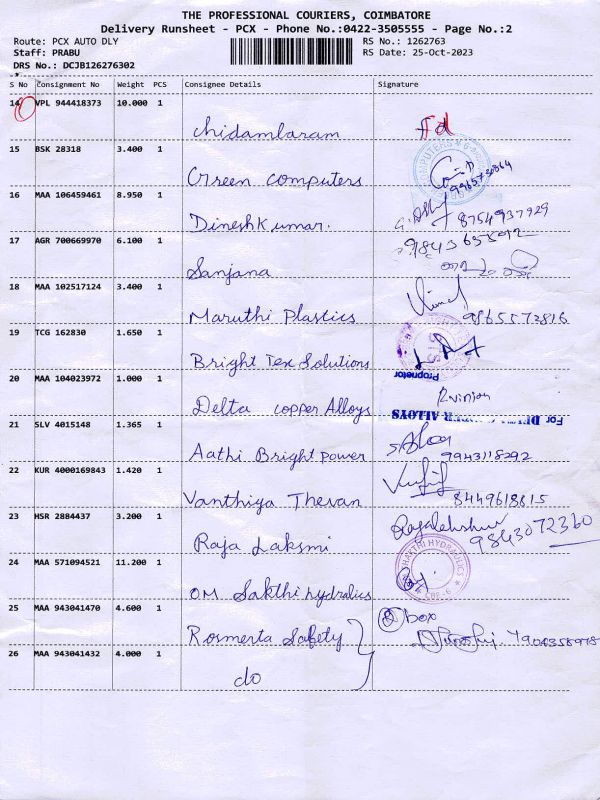 THE PROFESSIONAL COURIERS, COIMBATORE
Delivery Runsheet - PCX - Phone No.:0422-3505555 - Page No.:2
Route: PCX AUTO DLY RS No.: 1262763
Staff: PRABU RS Date: 25-Oct-2023
DRS No.: DCJB126276302
S No Consignment No Weight PCS Consignee Details Signature
14 VPL 944418373 10.000 1
Chidamlaram
15 BSK 28318 3.400 1
Green computers
16 MAA 106459461 8.950 1
Dineshkumar. 8754937929
17 AGR 700669970 6.100 1
Sanjana
18 MAA 102517124 3.400 1
Maruthi Plastics 9865573816
19 TCG 162830 1.650 1
Bright Tex Solutions Proprietor
20 MAA 104023972 1.000 1
Delta copper Alloys For ALLOYS
21 SLV 4015148 1.365 1
Aathi Bright power 9943118292
22 KUR 4000169843 1.420 1
Vanthiya Thevan 8449618615
23 HSR 2884437 3.200 1
Raja Laksmi 9843072360
24 MAA 571094521 11.200 1
OM Sakthi hydralics
25 MAA 943041470 4.600 1 box
Rosmerta Safety
26 MAA 943041432 4.000 1
do